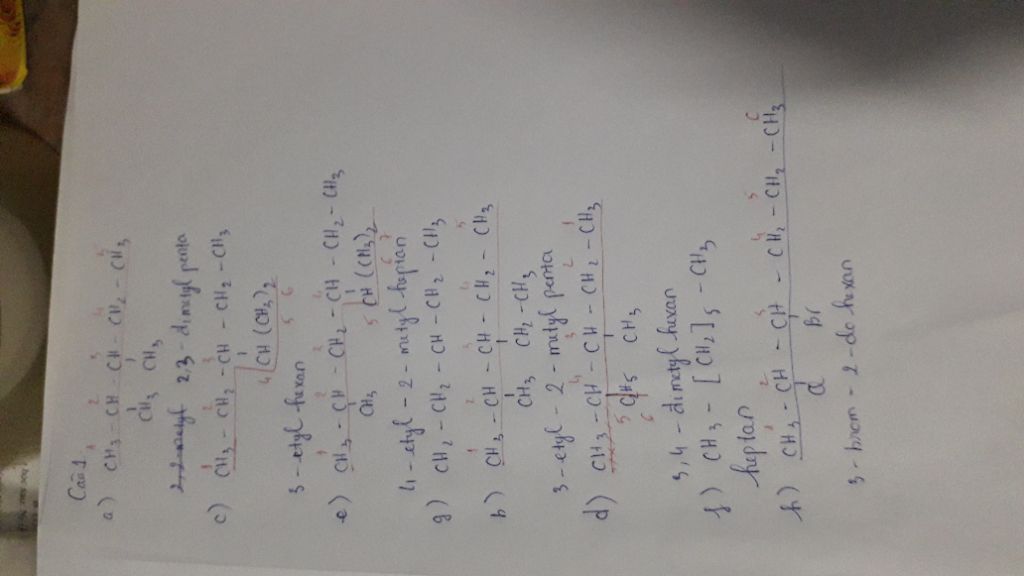 Câu 1
a) CH3 - CH - CH - CH2 - CH3
1 2 3 4 5
CH3 CH3
2,2-metyl 2,3-dimetyl penta
c) CH3 - CH2 - CH - CH2 - CH3
1 2 3
4 CH(CH3)2
5 6
3-etyl hexan
e) CH3 - CH - CH2 - CH - CH2 - CH3
1 2 3 4
CH3 5 CH(CH3)2
6 7
4-etyl-2-metyl heptan
g) CH2 - CH2 - CH - CH2 - CH3
b) CH3 - CH - CH - CH2 - CH3
1 2 3 4 5
CH3 CH2 - CH3
3-etyl-2-metyl penta
d) CH3 - CH - CH - CH2 - CH3
4 3 2 1
5 CH5 CH3
6
3,4-dimetyl hexan
f) CH3 - [CH2]5 - CH3
heptan
h) CH3 - CH - CH - CH2 - CH2 - CH3
1 2 3 4 5 6
Cl Br
3-brom-2-clo hexan